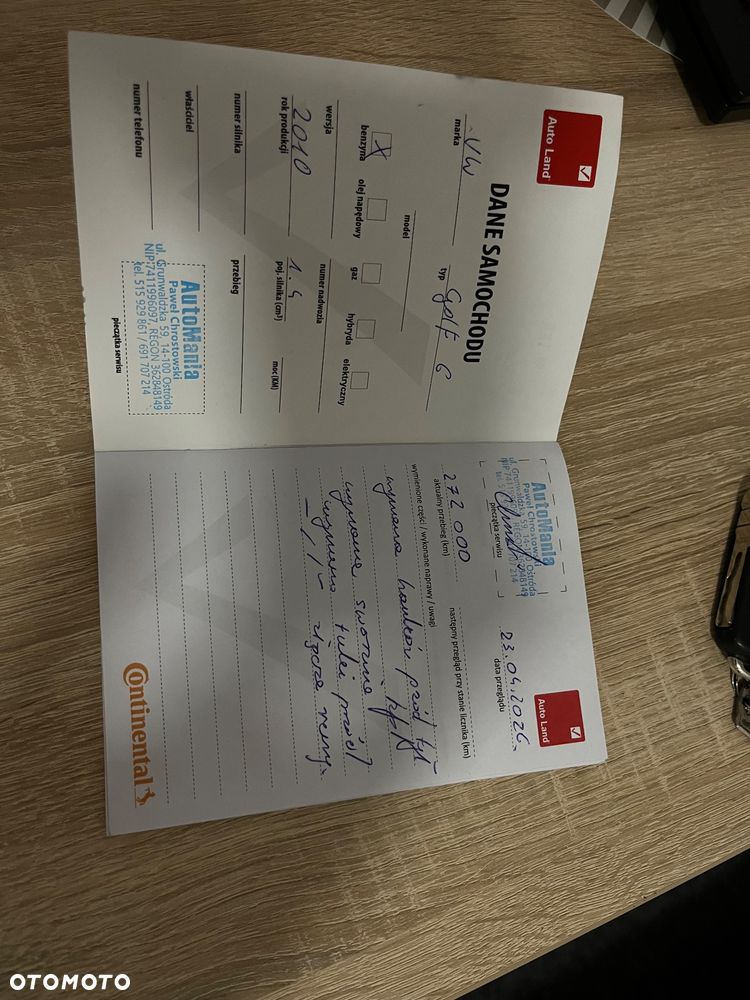 Auto Land
DANE SAMOCHODU
VW
Golf 6
marka
typ
model
X
benzyna
olej napędowy
gaz
hybryda
elektryczny
wersja
numer nadwozia
2010
1.4
rok produkcji
poj. silnika (cm³)
moc (KM)
numer silnika
przebieg
właściciel
numer telefonu
AutoMania
Paweł Chrostowski
ul. Grunwaldzka 59, 14-100 Ostróda
NIP:7411996097, REGON 362848149
tel. 515 629 861 / 691 707 214
pieczątka serwisu
AutoMania
Paweł Chrostowski
ul. Grunwaldzka 59, 14-100 Ostróda
pieczątka serwisu
Auto Land
23.04.2026
data przeglądu
272 000
aktualny przebieg (km)
następny przegląd przy stanie licznika (km)
wymienione części / wykonane naprawy / uwagi
wymiana hamulców przód tył
wymiana sworznia
wymiana tulei przód
Continental
OTOMOTO